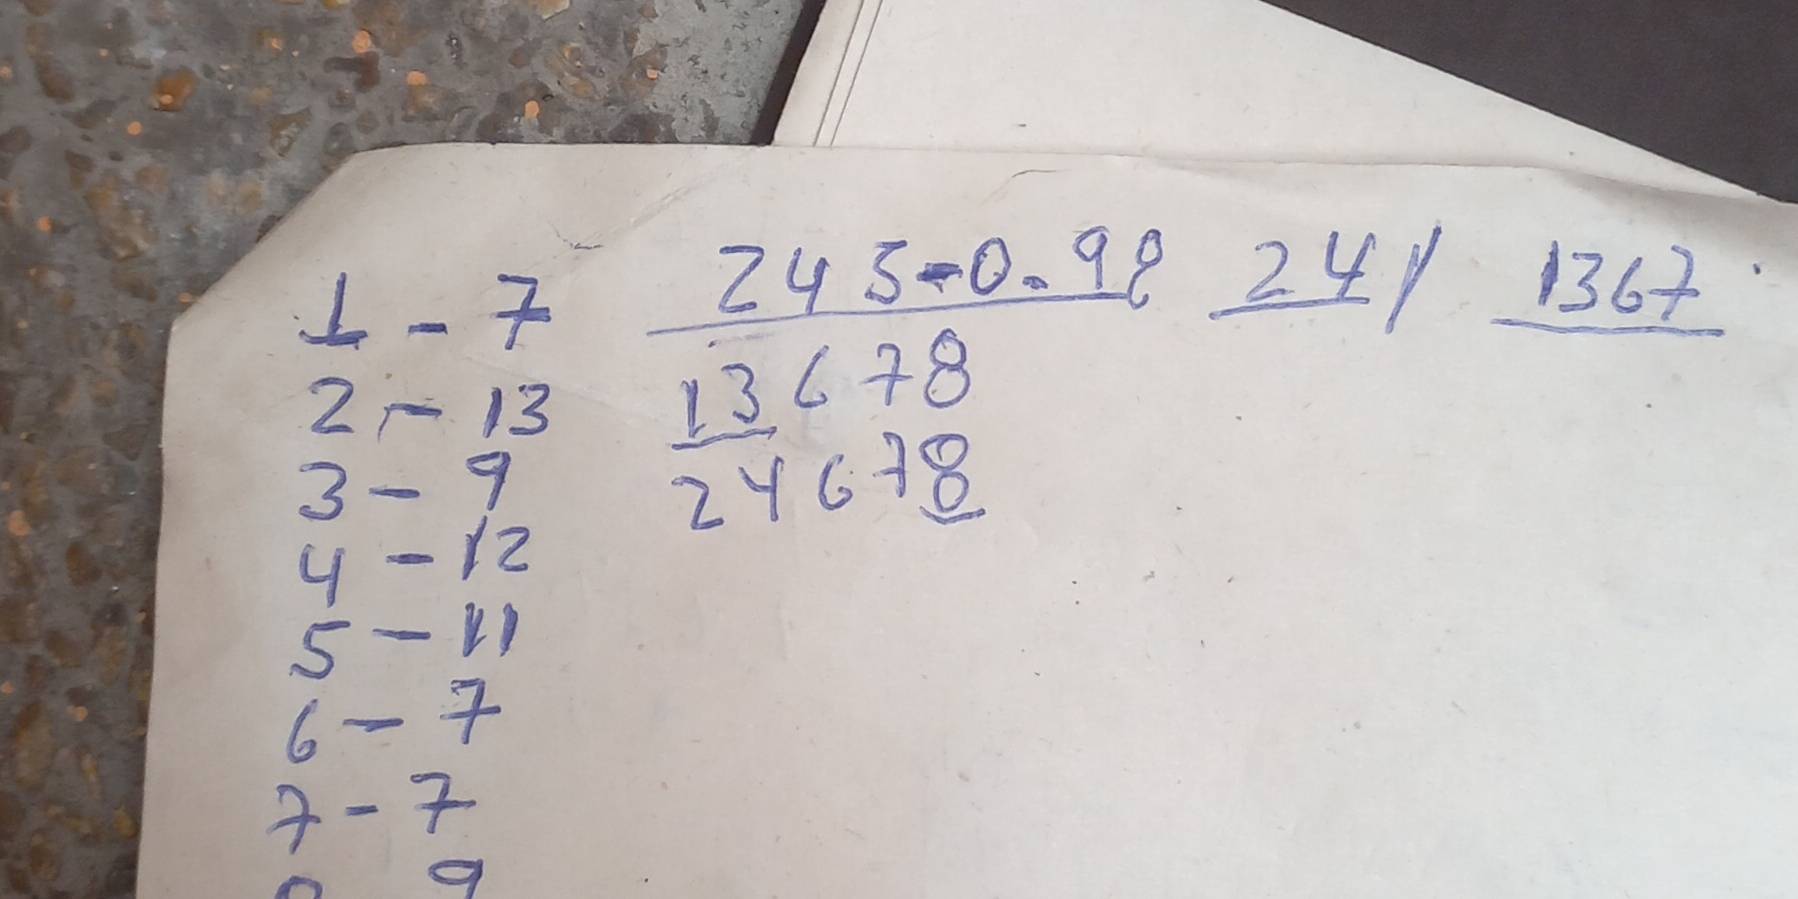 1 - 7
2 - 13
3 - 9
4 - 12
5 - 11
6 - 7
7 - 7
9
245-0.98 24/ 1367
13678
24678